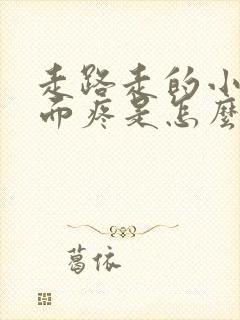 走路走的小
而疼是怎麼
葛依